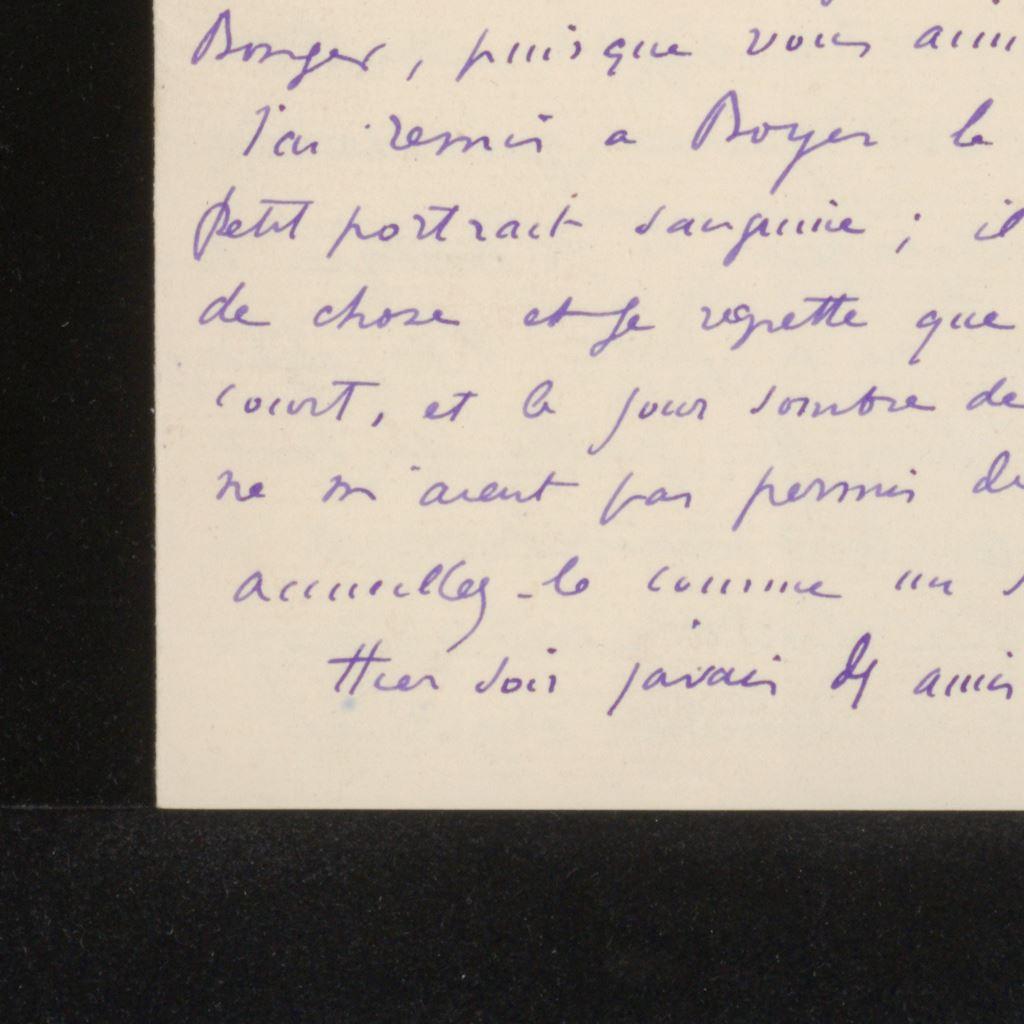 Bonger, puisque vous aim
J'ai remis a Boyer le
petit portrait sanguine ; il
de chose et je regrette que
court, et le jour sombre de
ne m'aient pas permis de
accueillez-le comme un s
Hier soir j'avais dj amis